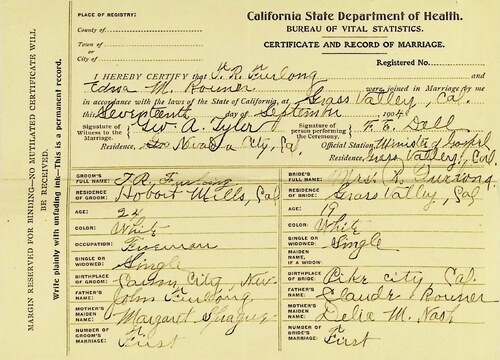 PLACE OF REGISTRY:
County of
Town of
or
City of
California State Department of Health.
BUREAU OF VITAL STATISTICS.
CERTIFICATE AND RECORD OF MARRIAGE.
Registered No.
I HEREBY CERTIFY that T. R. Furlong and
Edna M. were joined in Marriage by me
in accordance with the laws of the State of California, at Grass Valley, Cal.
this Seventeenth day of September 1904
Signature of Witness to the Marriage. Geo A. Tyler
Signature of person performing the Ceremony. F. E. Dell
Residence, Nevada City, Ca
Official Station, Minister of Gospel
Residence, Grass Valley, Cal
GROOM'S FULL NAME: T. R. Furlong
BRIDE'S FULL NAME: Mrs.
RESIDENCE OF GROOM: Hobart Mills, Cal
RESIDENCE OF BRIDE: Grass Valley, Cal
AGE: 24
AGE: 19
COLOR: White
COLOR: White
OCCUPATION: Fireman
SINGLE OR WIDOWED: Single
SINGLE OR WIDOWED: Single
MAIDEN NAME, IF A WIDOW:
BIRTHPLACE OF GROOM: City, Nev
BIRTHPLACE OF BRIDE: Pike City Cal.
FATHER'S NAME: John Furlong
FATHER'S NAME: Claude
MOTHER'S MAIDEN NAME: Margaret
MOTHER'S MAIDEN NAME: Delia M. Nash
NUMBER OF GROOM'S MARRIAGE: First
NUMBER OF BRIDE'S MARRIAGE: First
MARGIN RESERVED FOR BINDING—NO MUTILATED CERTIFICATE WILL
BE RECEIVED.
Write plainly with unfading ink—This is a permanent record.